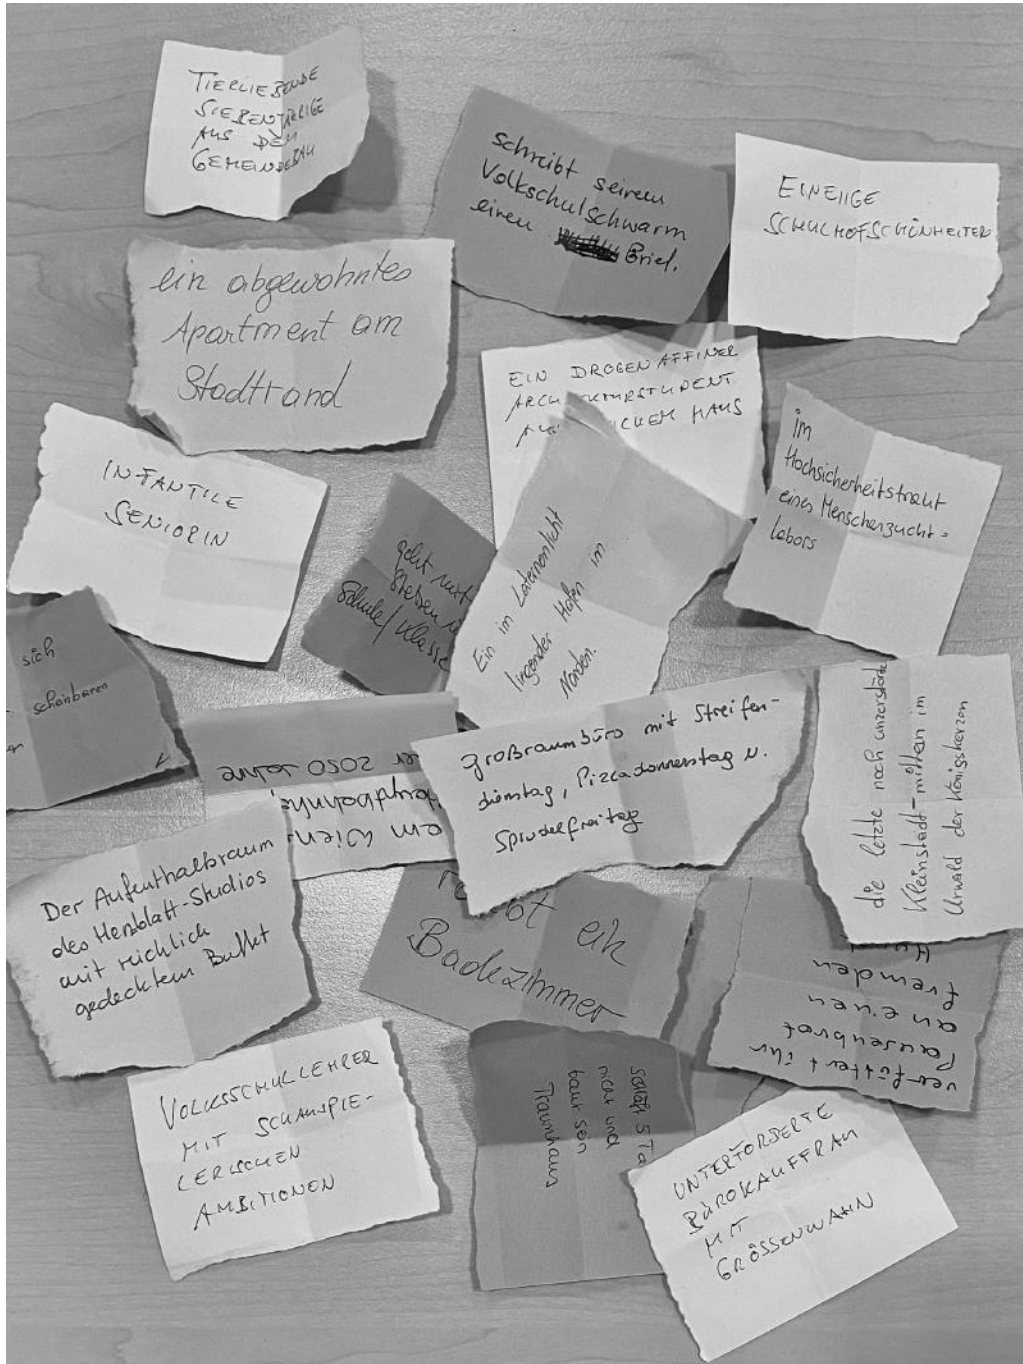 TIERLIEBENDE
SIEBENJÄHRIGE
AUS DEM
GEMEINDEBAU
schreibt seinem
Volkschulschwarm
einen Brief.
EINEIIGE
SCHULHOFSCHÖNHEITEN
ein abgewohntes
Apartment am
Stadtrand
EIN DROGENAFFINER
HAUS
im
Hochsicherheitstrakt
eines Menschenzucht-
labors
INFANTILE
SENIORIN
geht mit
Schule/Klasse
Ein im Laternenlicht
liegender Hafen im
Norden.
sich
scheinbaren
2050 Jahre
am Wien
Großraumbüro mit Streifen-
dienstag, Pizzadonnerstag u.
Sprudelfreitag
die letzte noch unzerstörte
Kleinstadt – mitten im
Urwald der Königskerzen
Der Aufenthaltbraum
des Herzblatt-Studios
mit reichlich
gedecktem Buffet
ein
Badezimmer
verfüttert ihr
Pausenbrot
an einen
fremden
VOLKSSCHULLEHRER
MIT SCHAUSPIE-
LERISCHEN
AMBITIONEN
schläft 5 Ta
nicht und
baut sein
Traumhaus
UNTERFORDERTE
BÜROKAUFFRAU
MIT
GRÖSSENWAHN